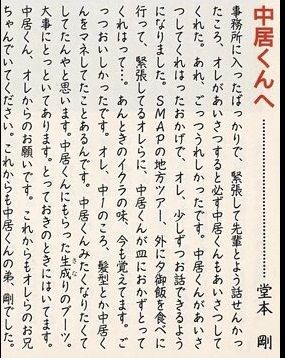 中居くんへ………………堂本 剛
事務所に入ったばっかりで、緊張して先輩とよう話せんかっ
たころ、オレがあいさつすると必ず中居くんもあいさつして
くれた。あれ、ごっつうれしかったです。中居くんがあいさ
つしてくれはったおかげで、オレ、少しずつお話できるよう
になりました。SMAPの地方ツアー、外に夕御飯を食べに
行って、緊張してるオレらに、中居くんが皿におかずとって
くれはって…。あんときのイクラの味、今も覚えてます。ご
っつおいしかったです。オレ、中1のころ、髪型とか中居く
んをマネしてたことあるんです。中居くんみたくなりたくて
してたんやと思います。中居くんにもらった生成りのブーツ。
きな
大事にとっといてあります。とっておきのときにはいてます。
中居くん、オレからのお願いです。これからもオレらのお兄
ちゃんでいてください。これからも中居くんの弟、剛でした。